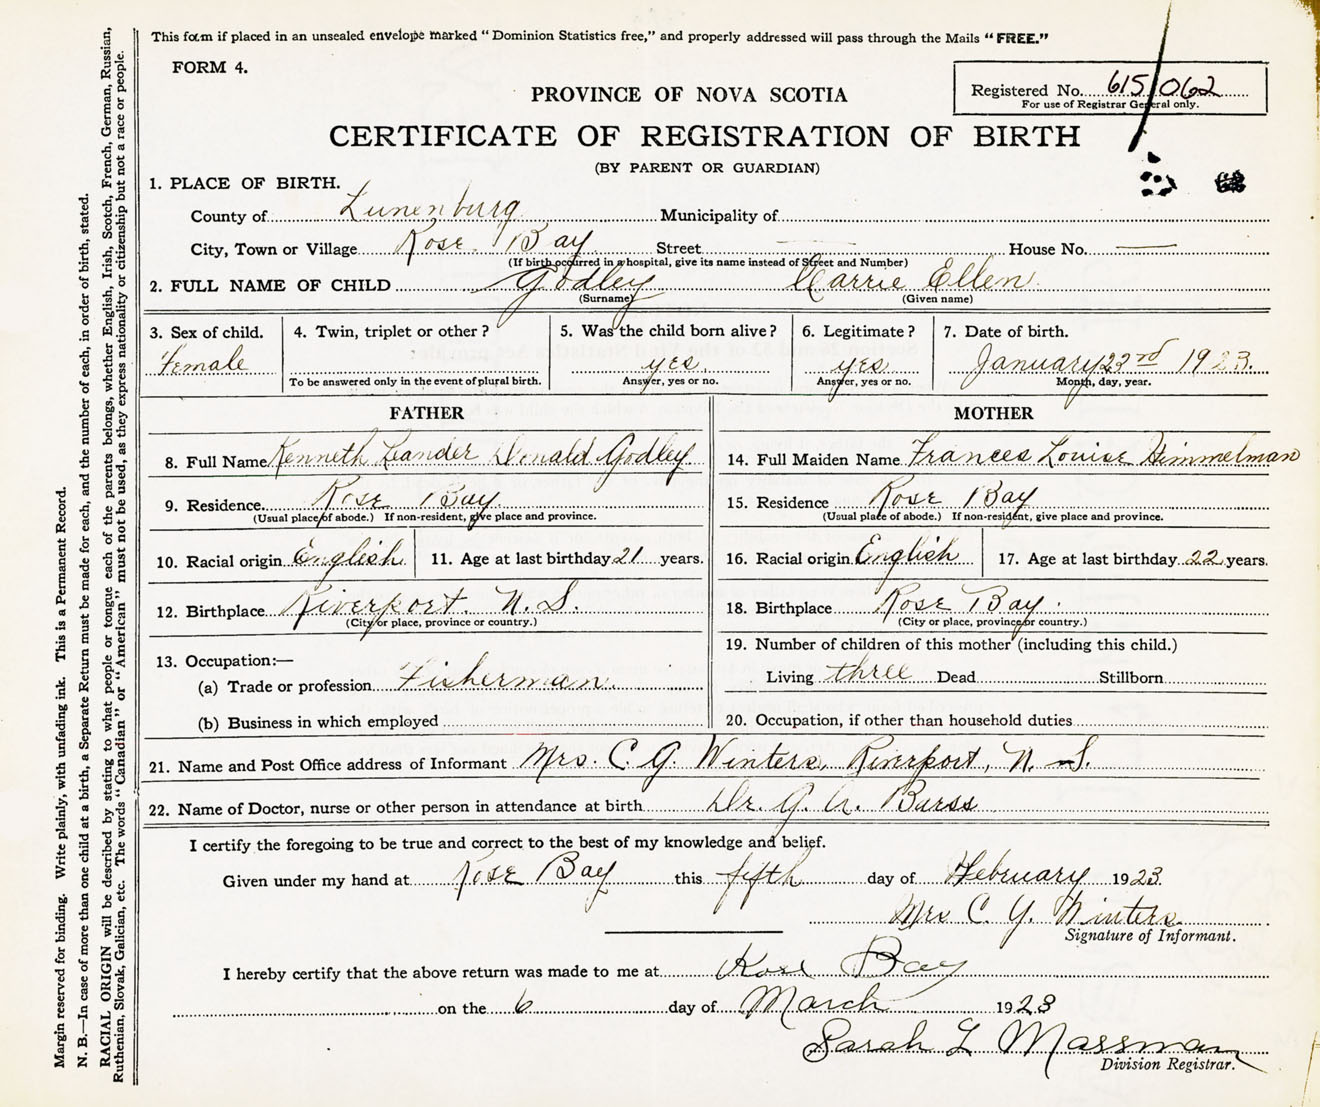 This form if placed in an unsealed envelope marked "Dominion Statistics free," and properly addressed will pass through the Mails "FREE."
FORM 4.
Registered No. 615062
For use of Registrar General only.
PROVINCE OF NOVA SCOTIA
CERTIFICATE OF REGISTRATION OF BIRTH
(BY PARENT OR GUARDIAN)
1. PLACE OF BIRTH.
County of Lunenburg Municipality of
City, Town or Village Rose Bay Street — House No. —
(If birth occurred in a hospital, give its name instead of Street and Number)
2. FULL NAME OF CHILD Godley Carrie Ellen
(Surname) (Given name)
3. Sex of child. 4. Twin, triplet or other? 5. Was the child born alive? 6. Legitimate? 7. Date of birth.
Female yes. yes January 23rd 1923.
To be answered only in the event of plural birth. Answer, yes or no. Answer, yes or no. Month, day, year.
FATHER
8. Full Name Kenneth Leander Donald Godley
9. Residence Rose Bay
(Usual place of abode.) If non-resident, give place and province.
10. Racial origin English 11. Age at last birthday 21 years.
12. Birthplace Riverport. N. S.
(City or place, province or country.)
13. Occupation:—
(a) Trade or profession Fisherman.
(b) Business in which employed
MOTHER
14. Full Maiden Name Frances Louise Himmelman
15. Residence Rose Bay
(Usual place of abode.) If non-resident, give place and province.
16. Racial origin English 17. Age at last birthday 22 years.
18. Birthplace Rose Bay.
(City or place, province or country.)
19. Number of children of this mother (including this child.)
Living three Dead Stillborn
20. Occupation, if other than household duties
21. Name and Post Office address of Informant Mrs. C. G. Winters, Riverport, N. S.
22. Name of Doctor, nurse or other person in attendance at birth Dr. G. A. Barss
I certify the foregoing to be true and correct to the best of my knowledge and belief.
Given under my hand at Rose Bay this fifth day of February 1923.
Mrs C. G. Winters
Signature of Informant.
I hereby certify that the above return was made to me at Rose Bay
on the 6 day of March 1923
Sarah L Mossman
Division Registrar.
Margin reserved for binding. Write plainly, with unfading ink. This is a Permanent Record.
N. B.—In case of more than one child at a birth, a Separate Return must be made for each, and the number of each, in order of birth, stated.
RACIAL ORIGIN will be described by stating to what people or tongue each of the parents belongs, whether English, Irish, Scotch, French, German, Russian,
Ruthenian, Slovak, Galician, etc. The words "Canadian" or "American" must not be used, as they express nationality or citizenship but not a race or people.